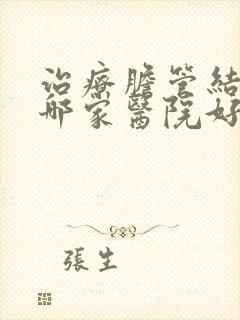 治療膽管結
哪家醫院好
張生